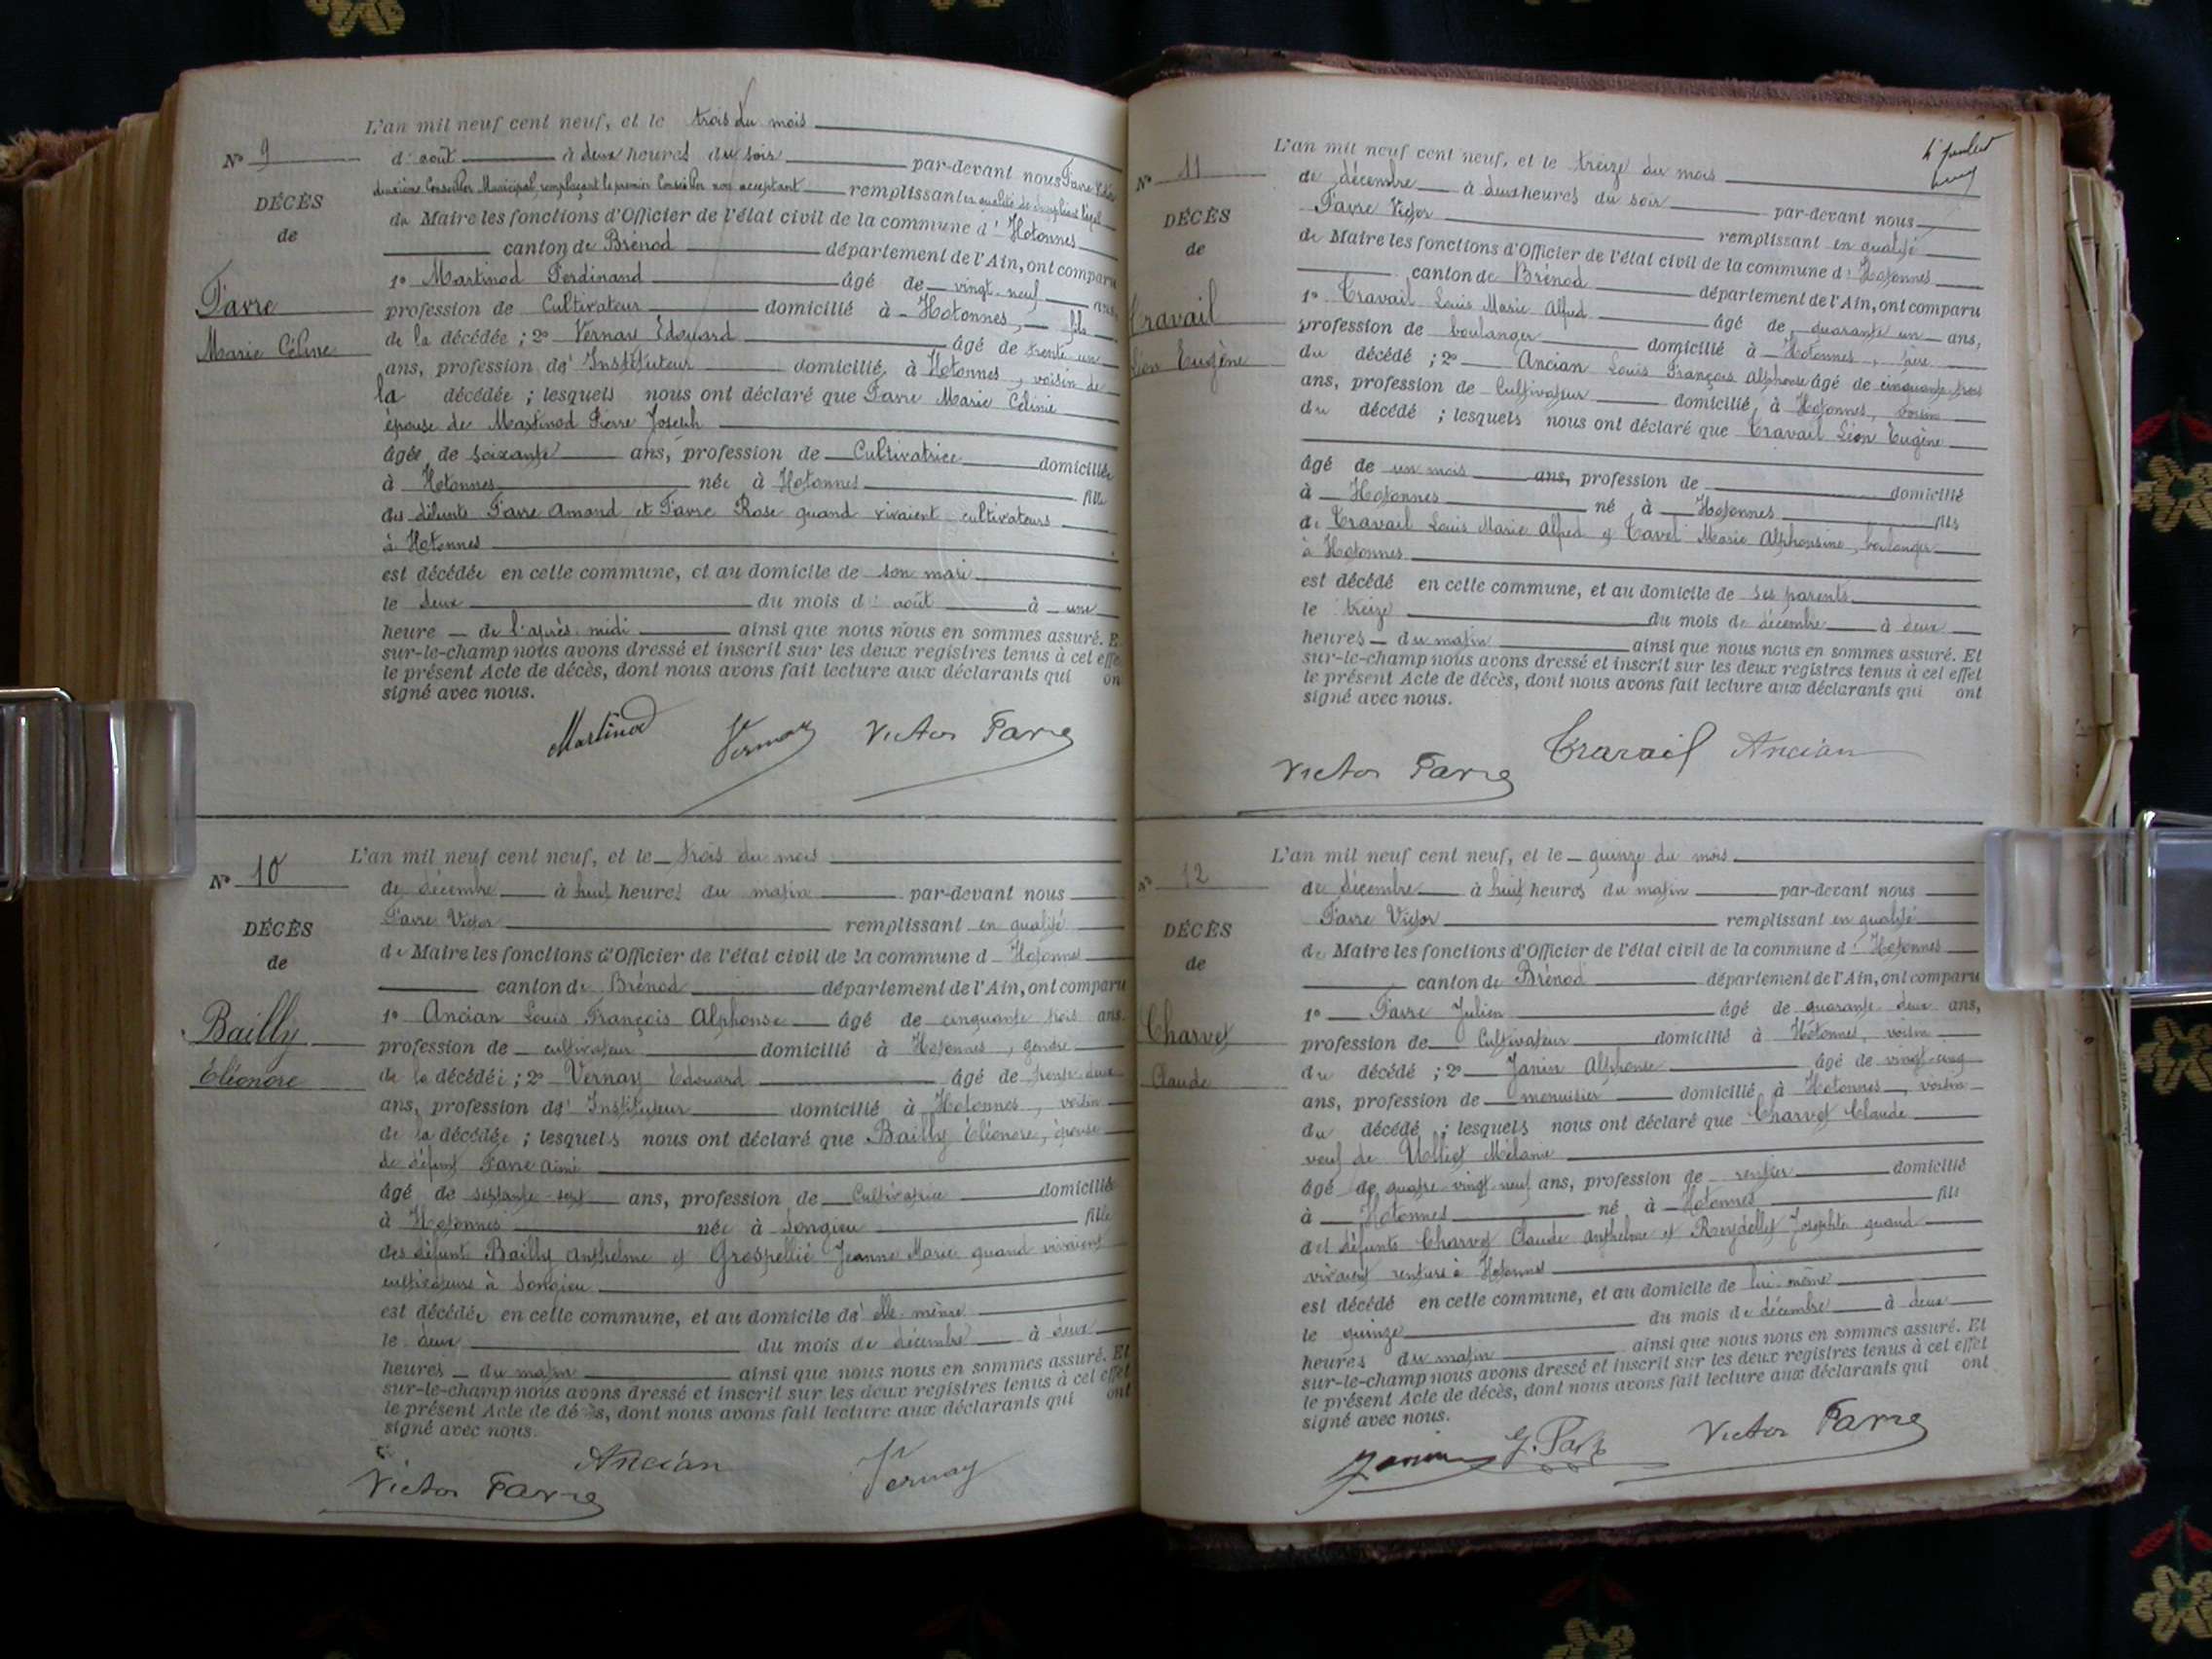 L'an mil neuf cent neuf, et le trois du mois
N° 9
d'août à deux heures du soir par-devant nous Favre Victor
deuxième Conseiller Municipal remplaçant le premier Conseiller non acceptant remplissant en qualité de suppléant légal
DÉCÈS
du Maire les fonctions d'Officier de l'état civil de la commune d'Hotonnes
de
canton de Brénod département de l'Ain, ont comparu
1° Martinod Ferdinand âgé de vingt-neuf ans,
Favre
profession de Cultivateur domicilié à Hotonnes, fils
Marie Céline
de la décédée ; 2° Vernay Edouard âgé de trente un
ans, profession d'Instituteur domicilié à Hotonnes, voisin de
la décédée ; lesquels nous ont déclaré que Favre Marie Célinie
épouse de Martinod Pierre Joseph
âgée de soixante ans, profession de Cultivatrice domiciliée
à Hotonnes née à Hotonnes fille
des défunts Favre Amand et Favre Rose quand vivaient cultivateurs
à Hotonnes
est décédée en cette commune, et au domicile de son mari
le deux du mois d'août à une
heure de l'après-midi ainsi que nous nous en sommes assuré. E
sur-le-champ nous avons dressé et inscrit sur les deux registres tenus à cet effe
le présent Acte de décès, dont nous avons fait lecture aux déclarants qui on
signé avec nous.
Martinod Vernay Victor Favre
L'an mil neuf cent neuf, et le trois du mois
N° 10
de décembre à huit heures du matin par-devant nous
DÉCÈS
Favre Victor remplissant en qualité
de
de Maire les fonctions d'Officier de l'état civil de la commune d Hotonnes
canton de Brénod département de l'Ain, ont comparu
Bailly
1° Ancian Louis François Alphonse âgé de cinquante trois ans.
profession de cultivateur domicilié à Hotonnes, gendre
Eléonore
de la décédée ; 2° Vernay Edouard âgé de trente-deux
ans, profession d'Instituteur domicilié à Hotonnes, voisin
de la décédée ; lesquels nous ont déclaré que Bailly Eléonore, épouse
de défunt Favre Aimé
âgé de septante-sept ans, profession de Cultivatrice domiciliée
à Hotonnes née à Songieu fille
des défunt Bailly Anthelme et Grospellié Jeanne Marie quand vivaient
cultivateurs à Songieu
est décédée en cette commune, et au domicile d'elle-même
le deux du mois de décembre à deux
heures du matin ainsi que nous nous en sommes assuré. Et
sur-le-champ nous avons dressé et inscrit sur les deux registres tenus à cet effet
le présent Acte de décès, dont nous avons fait lecture aux déclarants qui ont
signé avec nous.
Victor Favre Ancian Vernay
L'an mil neuf cent neuf, et le treize du mois
N° 11
de décembre à deux heures du soir par-devant nous
DÉCÈS
Favre Victor remplissant en qualité
de
de Maire les fonctions d'Officier de l'état civil de la commune d'Hotonnes
canton de Brénod département de l'Ain, ont comparu
Travail
1° Travail Louis Marie Alfred âgé de quarante un ans,
profession de boulanger domicilié à Hotonnes, père
Léon Eugène
du décédé ; 2° Ancian Louis François Alphonse âgé de cinquante-trois
ans, profession de Cultivateur domicilié à Hotonnes, voisin
du décédé ; lesquels nous ont déclaré que Travail Léon Eugène
âgé de un mois ans, profession de domicilié
à Hotonnes né à Hotonnes fils
de Travail Louis Marie Alfred et Tavel Marie Alphonsine, boulanger
à Hotonnes
est décédé en cette commune, et au domicile de ses parents
le treize du mois de décembre à deux
heures du matin ainsi que nous nous en sommes assuré. Et
sur-le-champ nous avons dressé et inscrit sur les deux registres tenus à cet effet
le présent Acte de décès, dont nous avons fait lecture aux déclarants qui ont
signé avec nous.
Victor Favre Travail Ancian
L'an mil neuf cent neuf, et le quinze du mois
N° 12
de décembre à huit heures du matin par-devant nous
DÉCÈS
Favre Victor remplissant en qualité
de
de Maire les fonctions d'Officier de l'état civil de la commune d'Hotonnes
canton de Brénod département de l'Ain, ont comparu
Charvet
1° Favre Julien âgé de quarante deux ans,
profession de Cultivateur domicilié à Hotonnes, voisin
Claude
du décédé ; 2° Janin Alphonse âgé de vingt-cinq
ans, profession de menuisier domicilié à Hotonnes, voisin
du décédé ; lesquels nous ont déclaré que Charvet Claude
veuf de Ulliet Mélanie
âgé de quatre-vingt-neuf ans, profession de rentier domicilié
à Hotonnes né à Hotonnes fils
des défunts Charvet Claude Anthelme et Josephte quand
vivaient rentiers à Hotonnes
est décédé en cette commune, et au domicile de lui-même
le quinze du mois de décembre à deux
heures du matin ainsi que nous nous en sommes assuré. Et
sur-le-champ nous avons dressé et inscrit sur les deux registres tenus à cet effet
le présent Acte de décès, dont nous avons fait lecture aux déclarants qui ont
signé avec nous.
Janin Victor Favre